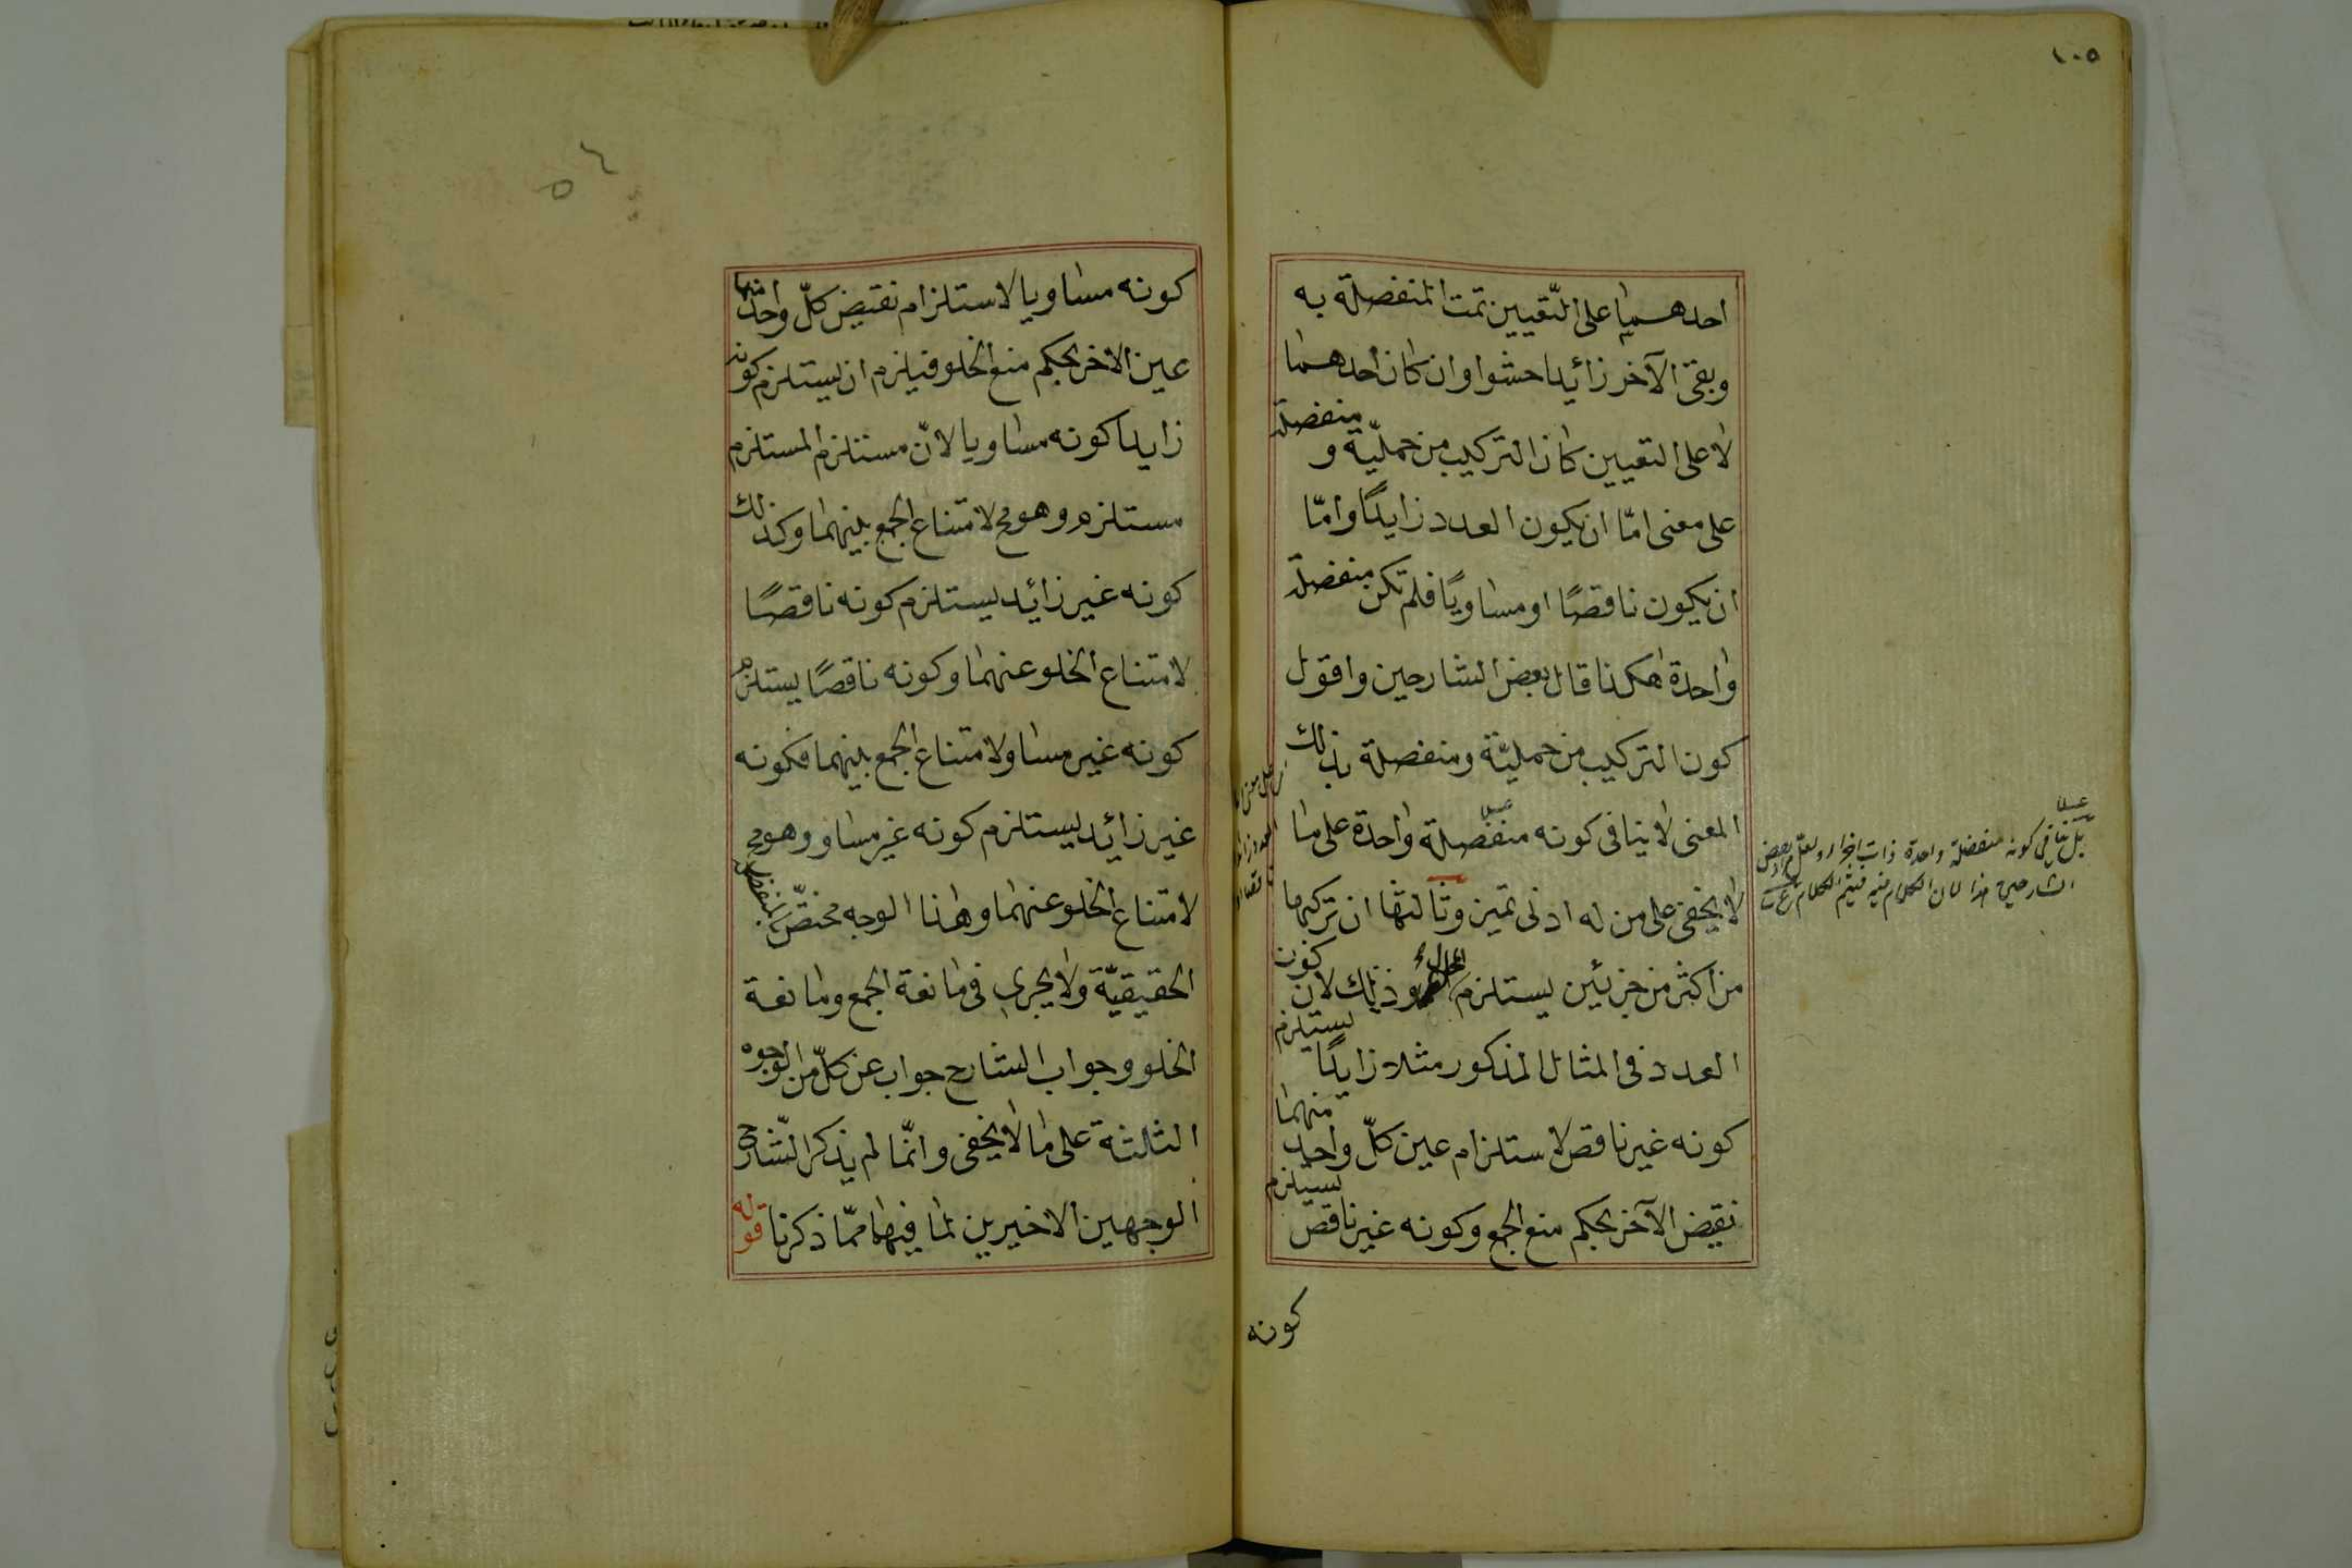 ١٠٥
احدهما على التعيين تمت المنفصلة به
وبقى الآخر زائدا حشوا وان كان احدهما
لا على التعيين كان التركيب من حملية و منفصلة
على معنى امّا ان يكون العدد زايدًا وامّا
ان يكون ناقصًا او مساويًا فلم تكن منفصلة
واحدة هكذا قال بعض الشارحين واقول
كون التركيب من حمليّة ومنفصلة بذلك
المعنى لا ينافى كونه منفصلة واحدة على ما
لا يخفى على من له ادنى تميز وثالثها ان تركبها
من اكثر من جزئين يستلزم المحال وذلك لان كون
العدد فى المثال المذكور مثلا زايدًا يستلزم
كونه غير ناقص لاستلزام عين كلّ واحد منهما
نقيض الآخر بحكم منع الجمع وكونه غير ناقص يستلزم
كونه
بل ينافى كونه منفصلة واحدة ذات اجزاء ولعل مراد بعض
الشارحين هذا لان الكلام فيه فيتم الكلام
كونه مساويا لاستلزام نقيض كلّ واحد منهما
عين الاخر بحكم منع الخلو فيلزم ان يستلزم كونه
زايدا كونه مساويا لانّ مستلزم المستلزم
مستلزم وهو مح لامتناع الجمع بينهما وكذلك
كونه غير زائد يستلزم كونه ناقصًا
لامتناع الخلو عنهما وكونه ناقصًا يستلزم
كونه غير مساو لامتناع الجمع بينهما فكونه
غير زائد يستلزم كونه غير مساو وهو مح
لامتناع الخلو عنهما وهذا الوجه مختصّ بالمنفصلة
الحقيقيّة ولا يجرى فى مانعة الجمع ومانعة
الخلو وجواب الشارح جواب عن كلّ من الوجوه
الثلثة على ما لا يخفى وانّما لم يذكر الشّارح
الوجهين الاخيرين لما فيهما ممّا ذكرنا قوله